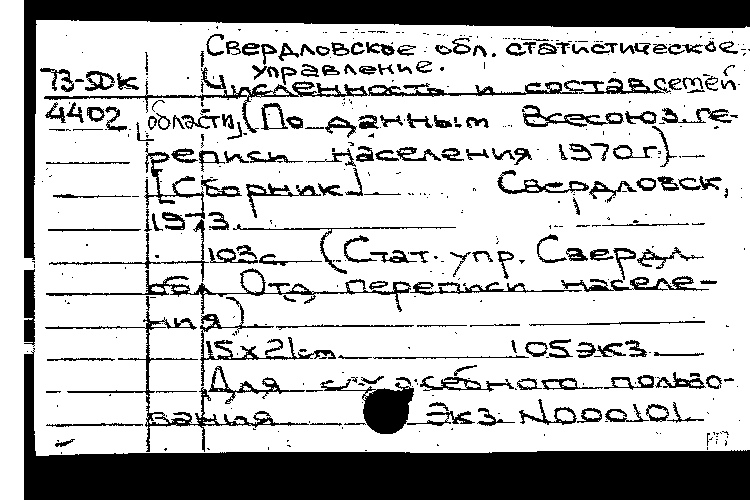 Свердловское обл. статистическое
управление.
73-5DK Численность и состав семей
4402 [области] (По данным Всесоюз. пе-
реписи населения 1970 г.)
[Сборник]. Свердловск,
1973.
103с. (Стат. упр. Свердл.
обл. Отд переписи населе-
ния).
15x21cm. 105экз.
Для служебного пользо-
вания. Экз. N000101.